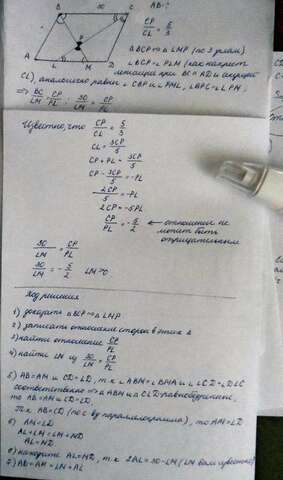 B 30 C
AB-?
CP/CL = 5/3
P
A L M D
△BCP ~ △LMP (по 3 углам)
∠BCP = ∠PLM (как накрест
лежащие при BC ∥ AD и секущей
CL), аналогично равны ∠CBP и ∠PML, ∠BPC = ∠LPM,
=> BC/LM = CP/PL ; 30/LM = CP/PL
Известно, что CP/CL = 5/3
CL = 3CP/5
CP + PL = 3CP/5
CP - 3CP/5 = -PL
2CP/5 = -PL
2CP = -5PL
CP/PL = -5/2 ← отношение не
может быть
отрицательным
30/LM = CP/PL
30/LM = -5/2 LM>0
Ход решения
1) доказать △BCP ~ △LMP
2) записать отношения сторон в этих △
3) найти отношение CP/PL
4) найти LM из 30/LM = CP/PL
5) AB=AM и CD=LD, т.к ∠ABM=∠BMA и ∠LCD=∠DLC
соответственно => △ABM и △CLD-равнобедрен.,
то AB=AM и CD=LD.
Т.к AB=CD (по св-ву параллелограмма), то AM=LD
6) AM=LD
AL+LM=LM+MD
AL=MD
6) находите AL=MD, т.к 2AL=30-LM (LM вам известно)
7) AB=AM=LM+AL